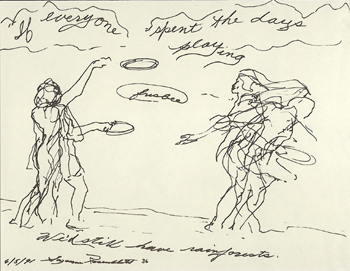 If everyone spent the days
playing
frisbee
We'd still have rainforests.
6/5/91